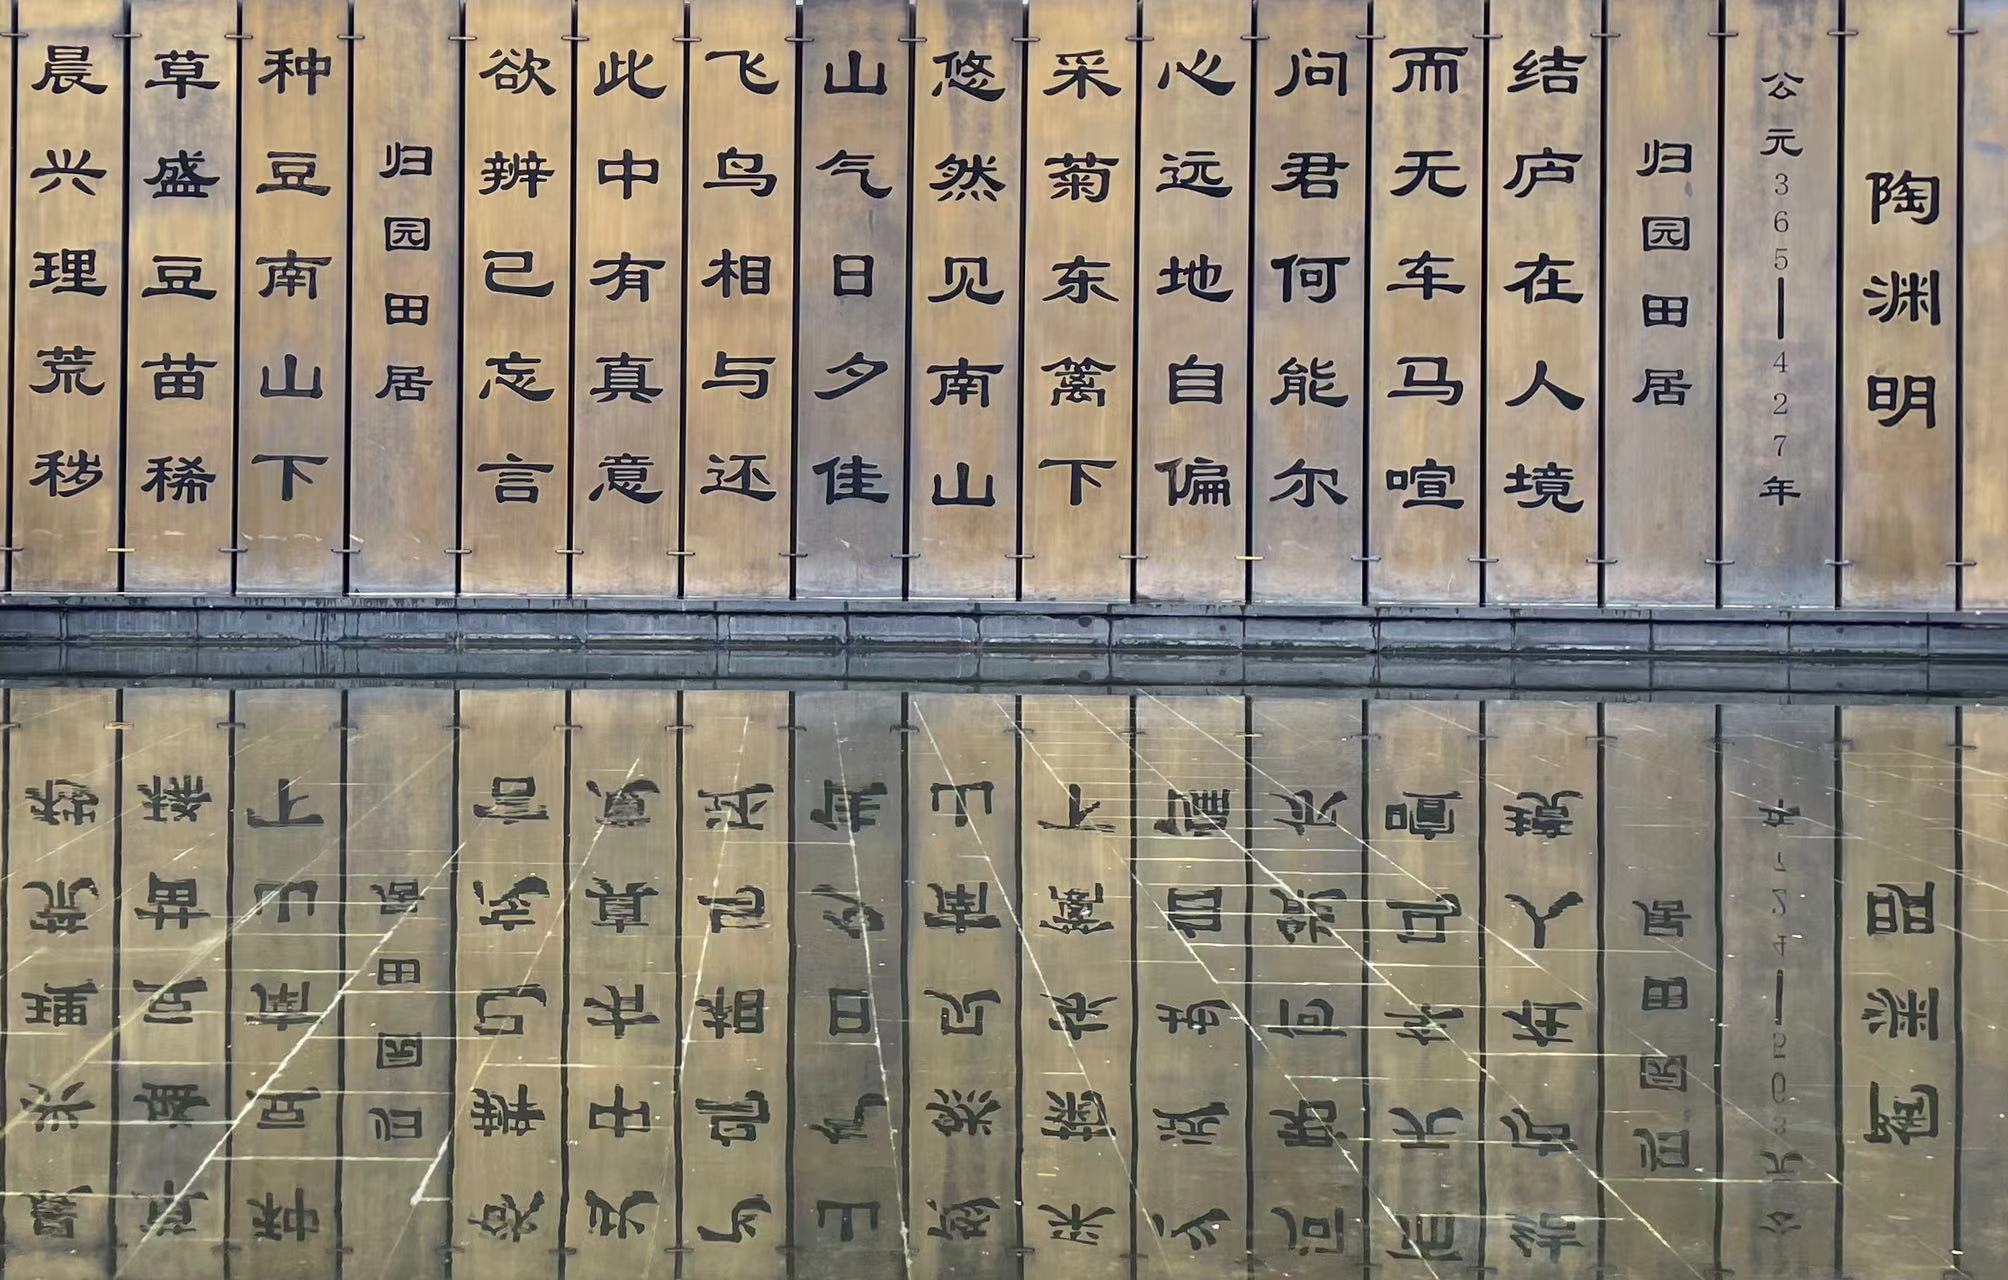 陶渊明
公元365—427年
归园田居
结庐在人境
而无车马喧
问君何能尔
心远地自偏
采菊东篱下
悠然见南山
山气日夕佳
飞鸟相与还
此中有真意
欲辨已忘言
归园田居
种豆南山下
草盛豆苗稀
晨兴理荒秽